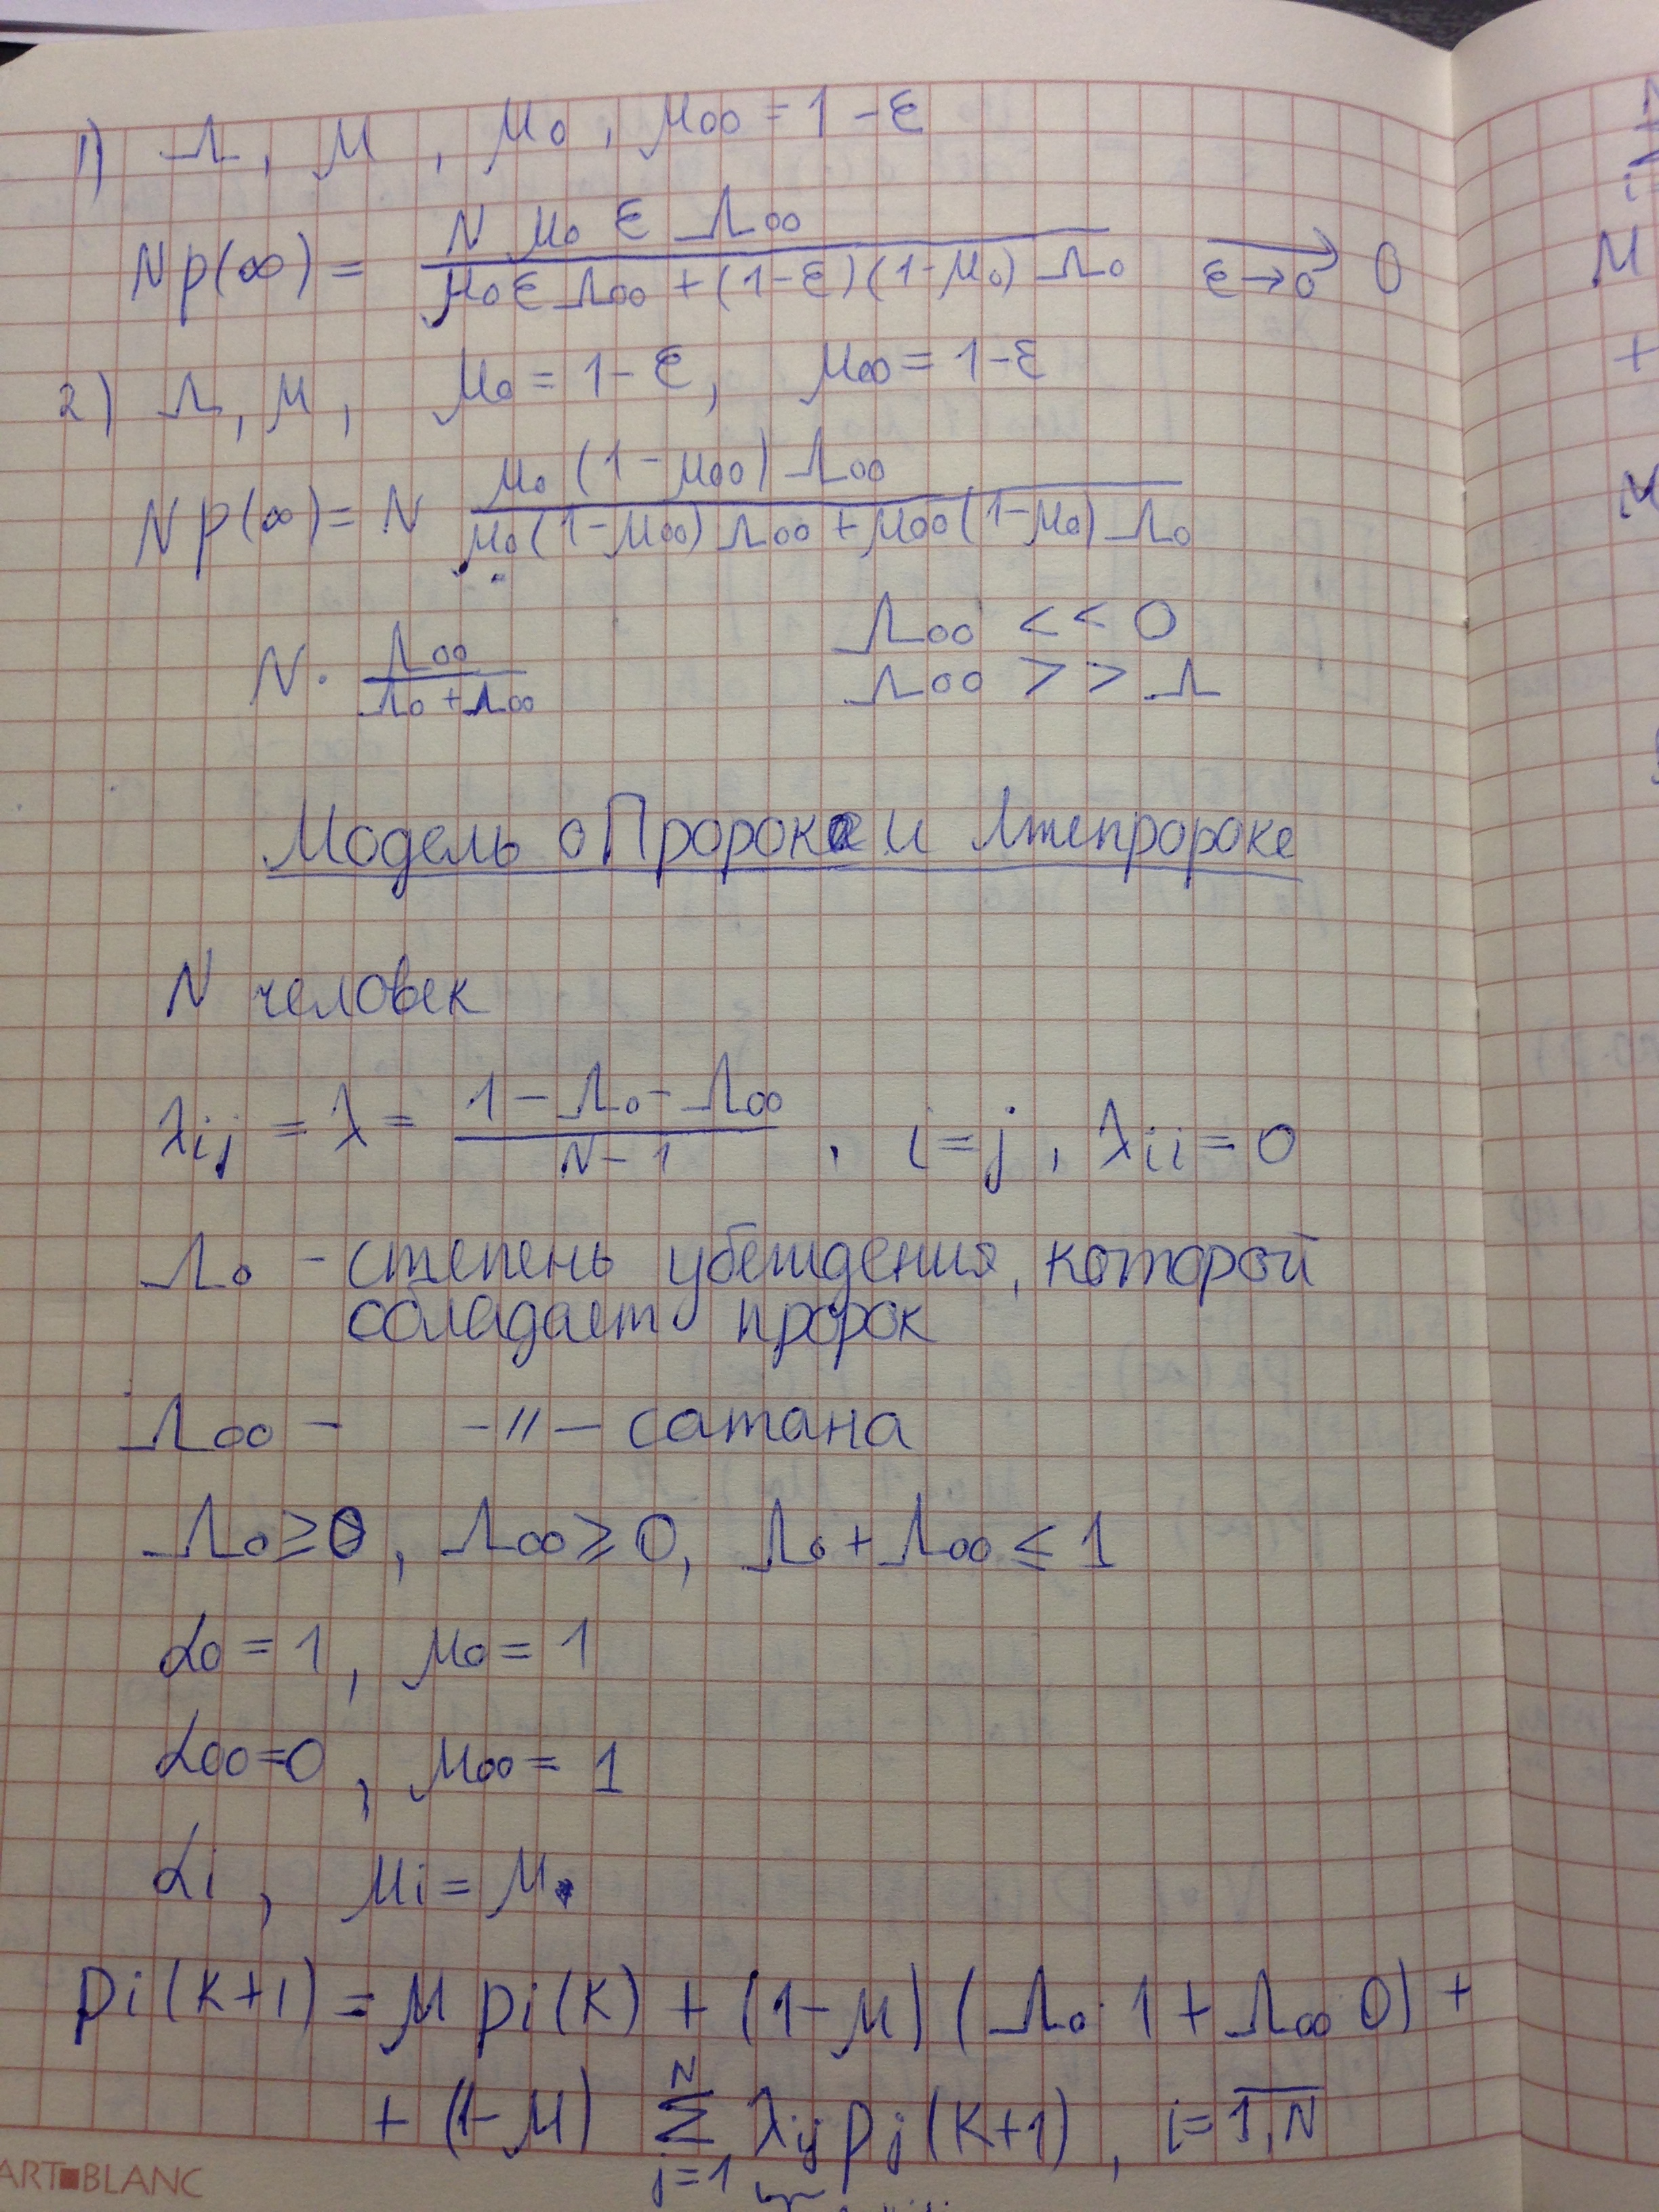 1) Λ, μ, μ₀, μ₀₀ = 1 - ε
N p(∞) = (N μ₀ ε Λ₀₀) / (μ₀ ε Λ₀₀ + (1-ε)(1-μ₀) Λ₀) →(ε→0) 0
2) Λ, μ, μ₀ = 1 - ε, μ₀₀ = 1 - ε
N p(∞) = N (μ₀ (1 - μ₀₀) Λ₀₀) / (μ₀ (1 - μ₀₀) Λ₀₀ + μ₀₀ (1 - μ₀) Λ₀)
Λ₀₀ << 0
N · Λ₀₀ / (Λ₀ + Λ₀₀)
Λ₀₀ >> Λ
Модель о Пророке и Лжепророке
N человек
λij = λ = (1 - Λ₀ - Λ₀₀) / (N - 1), i = j, λii = 0
Λ₀ - степень убеждения, которой
обладает пророк
Λ₀₀ - -//- сатана
Λ₀ ≥ 0, Λ₀₀ ≥ 0, Λ₀ + Λ₀₀ ≤ 1
α₀ = 1, μ₀ = 1
α₀₀ = 0, μ₀₀ = 1
αi, μi = μ
pi(k+1) = μ pi(k) + (1-μ) (Λ₀ · 1 + Λ₀₀ 0) +
+ (1-μ) Σ_{j=1}^{N} λij pj(k+1), i = 1,N
ART BLANC